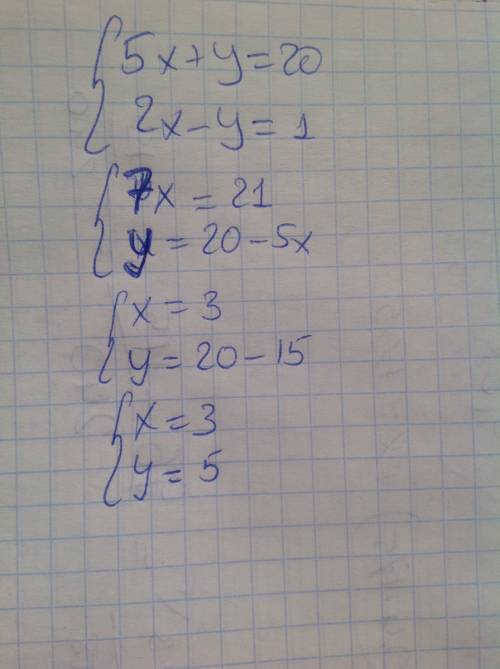 5x+y=20
2x-y=1
7x=21
y=20-5x
x=3
y=20-15
x=3
y=5